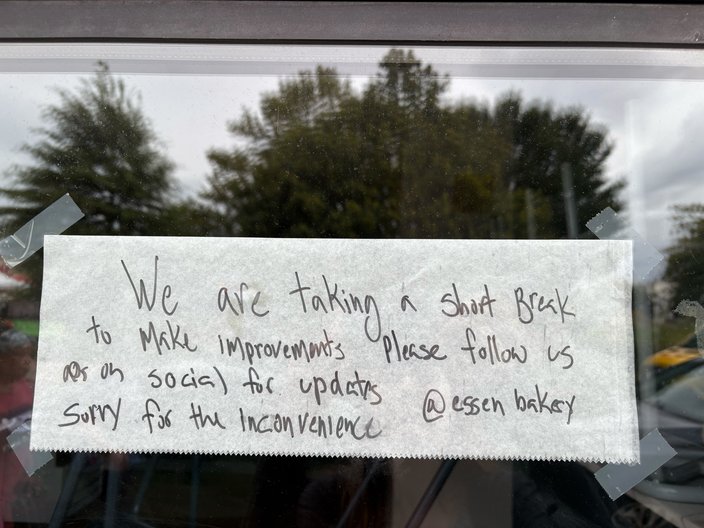 We are taking a short Break
to Make improvements Please follow us
on social for updates
Sorry for the Inconvenience @essen bakery